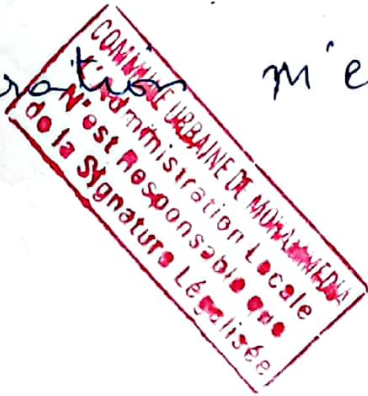 ration m'e
COMMUNE URBAINE DE MOHAMMEDIA
L'Administration Locale
N'est Responsable que
de la Signature Légalisée